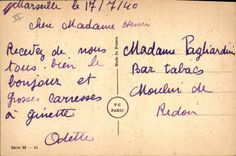 Marseille le 17/7/40
chère Madame Henri
Recevez de nous
tous bien le
bonjour et
grosses carresses
à Ginette
Odette
Made in France
P-C
PARIS
Madame Pagliardini
Bar tabacs
Moulin de
Redon
Série M - 42